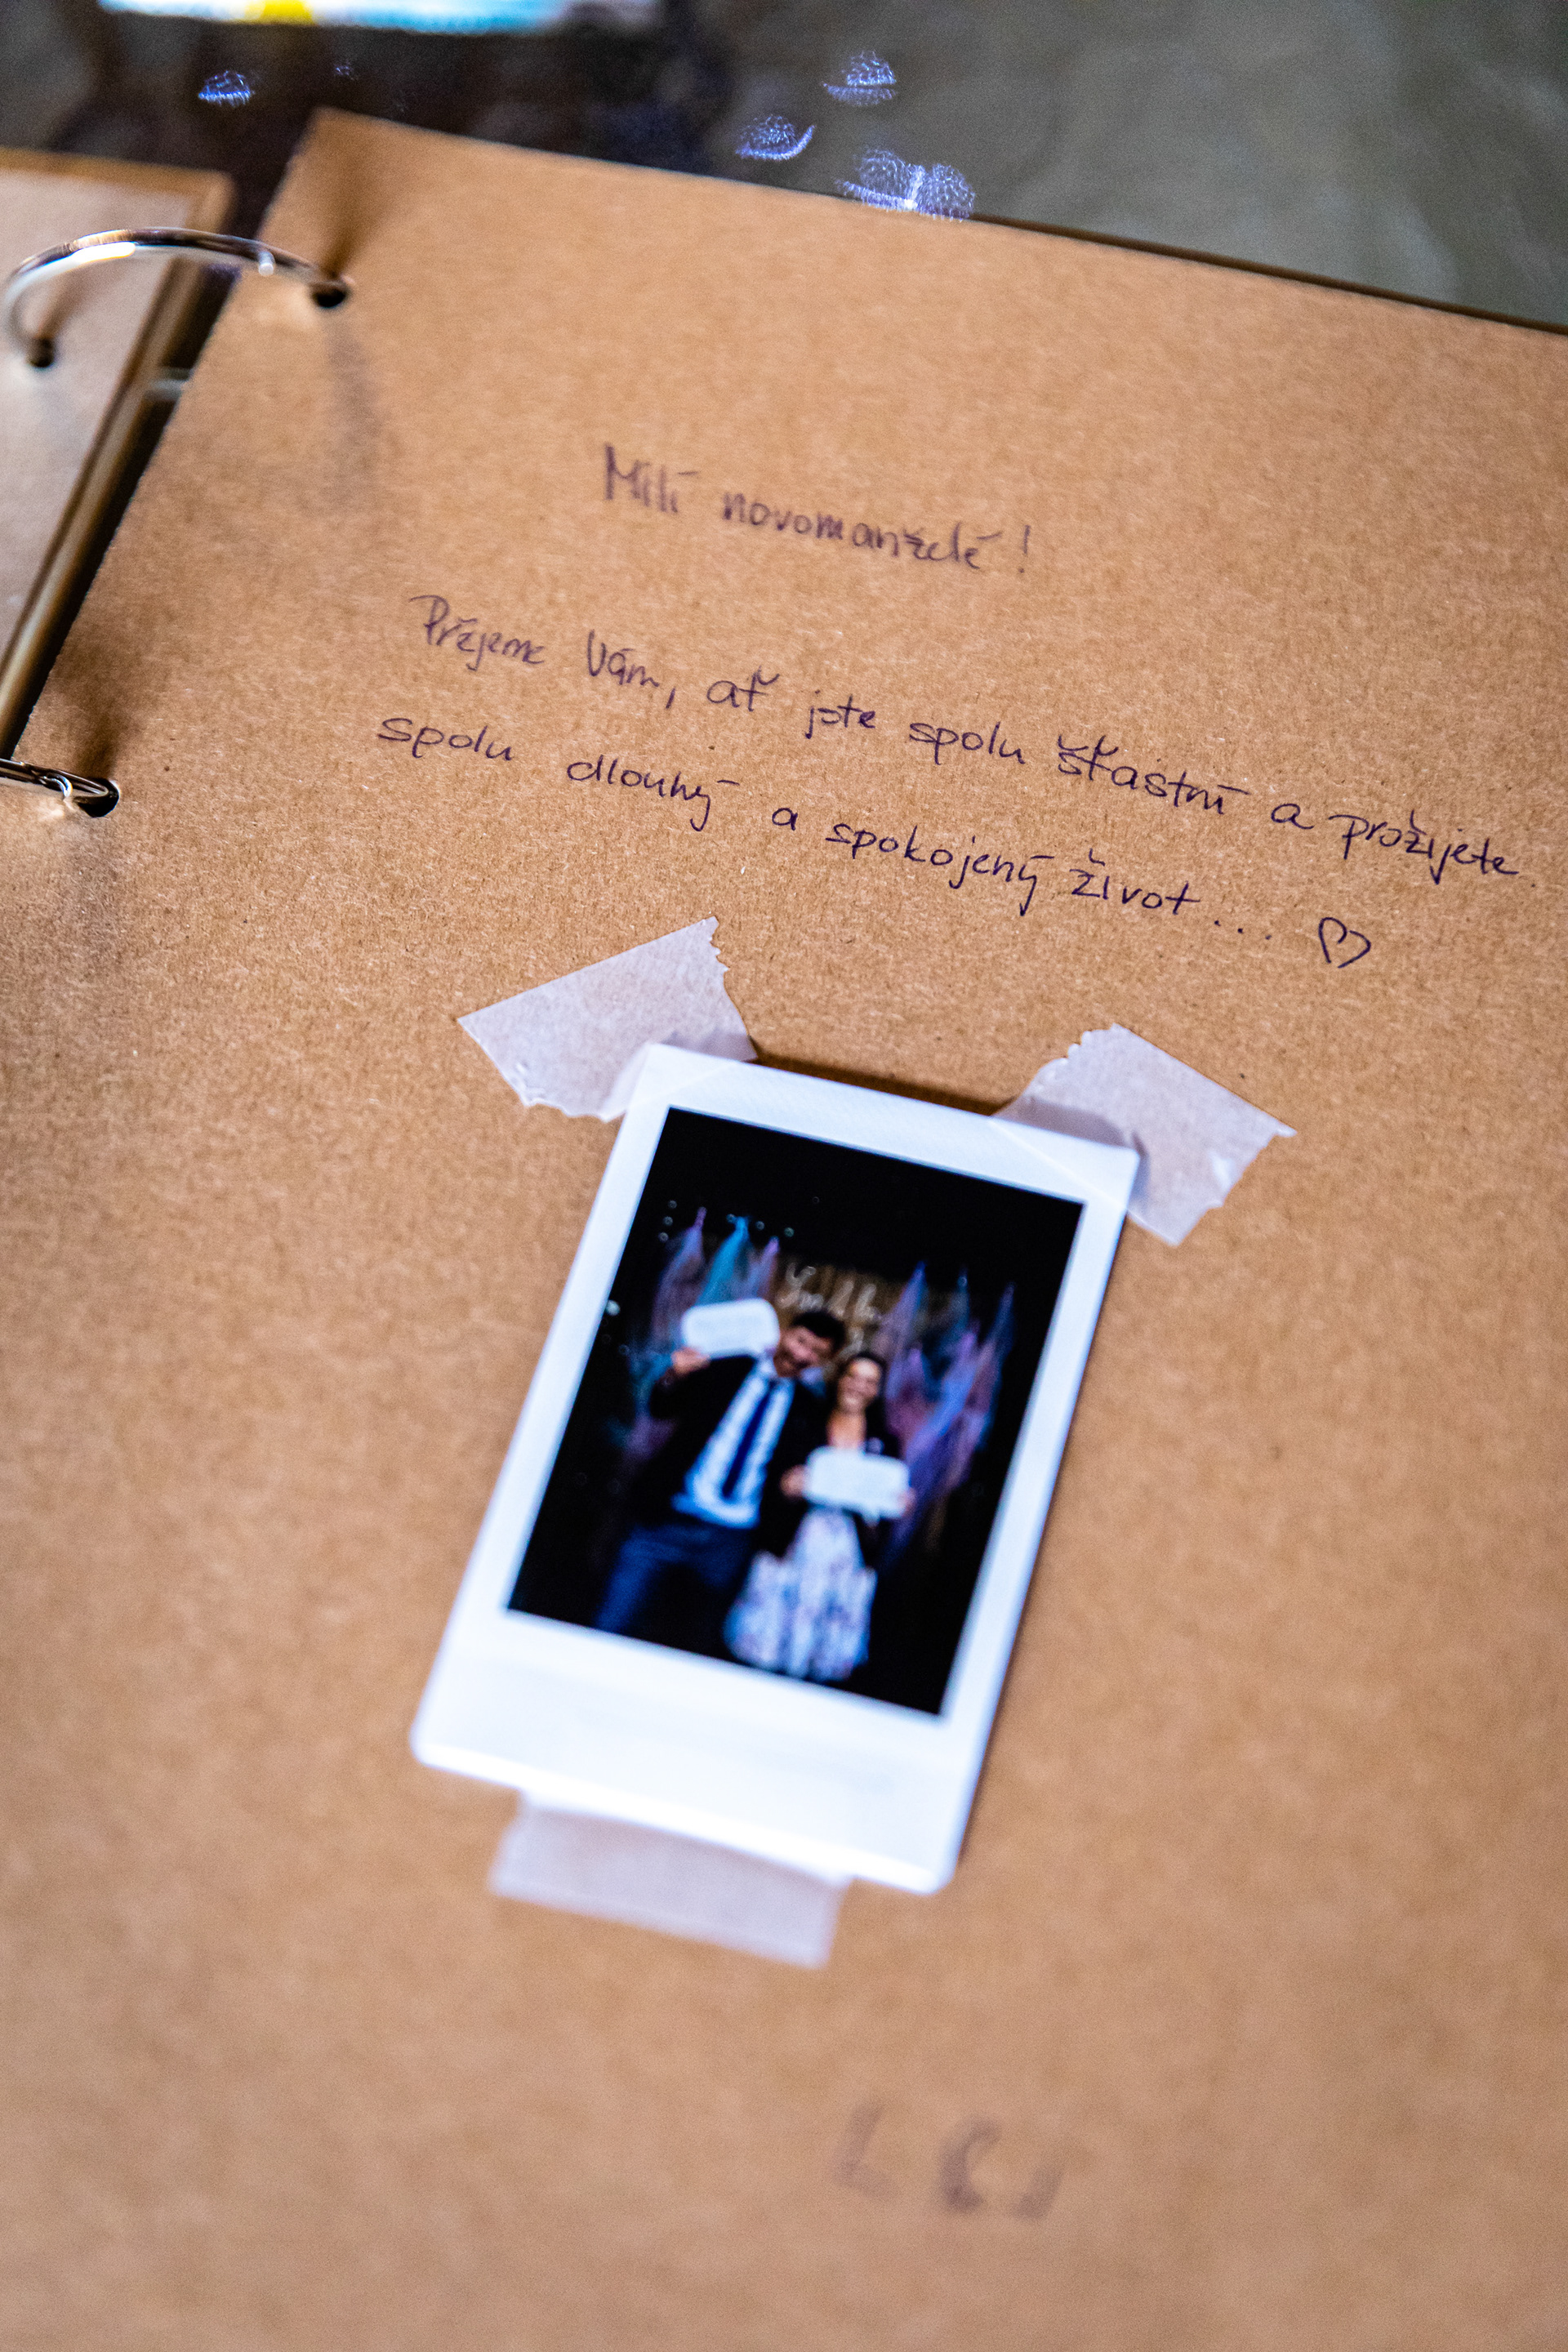 Milí novomanželé!
Přejeme Vám, ať jste spolu šťastní a prožijete
spolu dlouhý a spokojený život... ♡